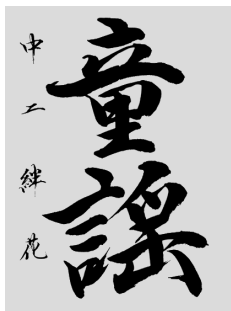 童謡
中二 絆花